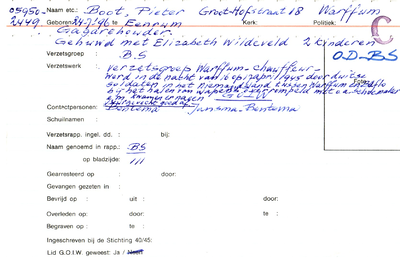 05950- Naam etc.: Boot, Pieter Groot-Hofstraat 18 Warffum
2449. Geboren 24-7-'96 te Eenrum Kerk: Politiek:
Garagehouder. C
Gehuwd met Elizabeth Wildeveld 2 kinderen
Verzetsgroep : B.S O.D-BS
Verzetswerk : Verzetsgroep Warffum-chauffeur-
werd in de nacht van 11 op 12 april 1945 door duitse
soldaten in het Niemandsland tussen Warffum en
bij het halen van wapens
Contactpersonen: Bentema Juniuma-Bentema
Schuilnaam :
Verzetsrapp. ingel. dd. : bij:
Naam genoemd in rapp.: BS
op bladzijde: 111
Gearresteerd op : door:
Gevangen gezeten in :
Bevrijd op : uit : door:
Overleden op: door: te :
Begraven op : te :
Ingeschreven bij de Stichting 40/45:
Lid G.O.I.W. geweest: Ja / Neen